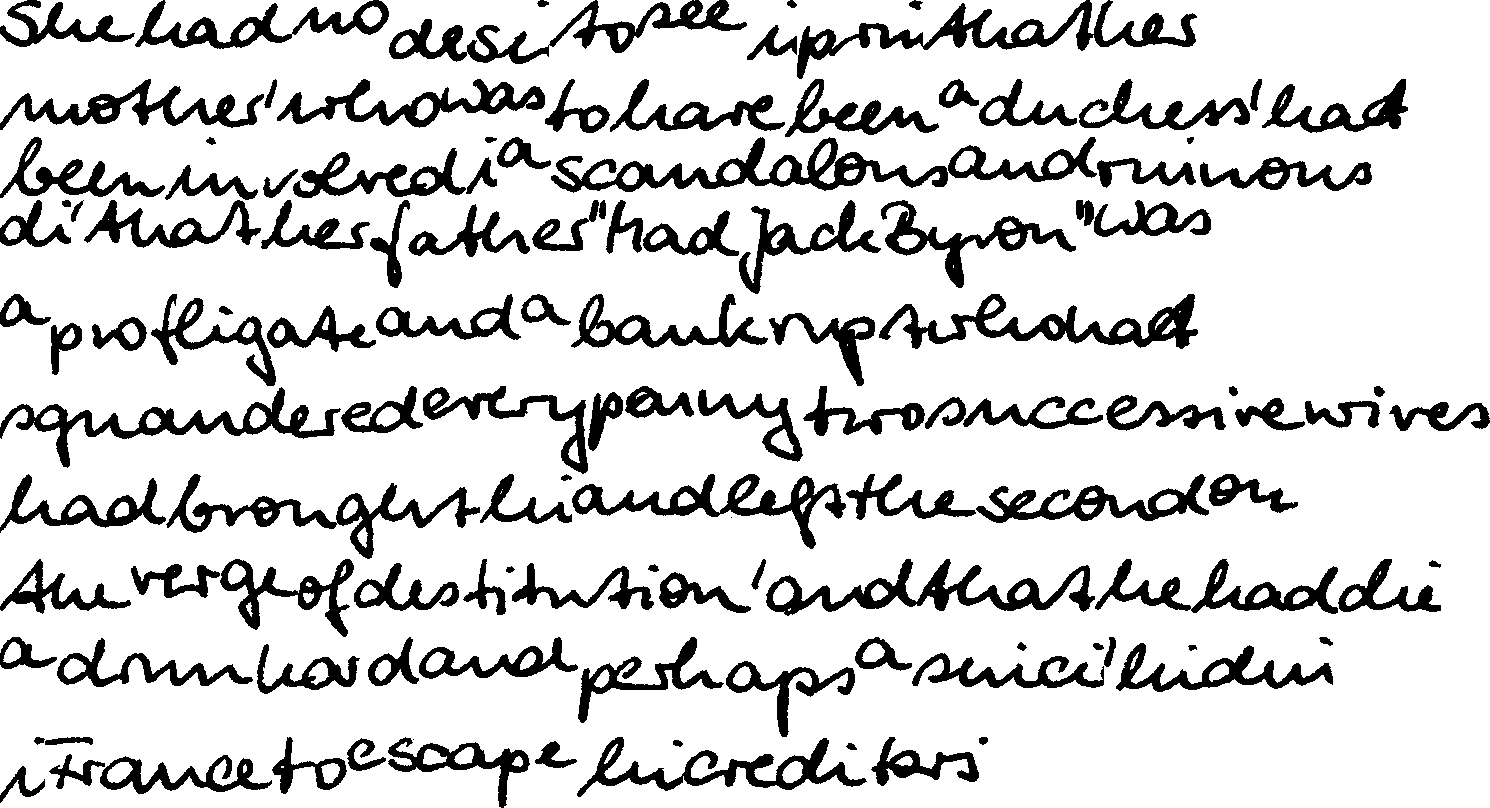 She had no desi to see i prin that her
mother' who was to have been a duchess' had
been involved i a scandalous and ruinous
di' that her father "Mad Jack Byron" was
a profligate and a bankrupt who had
squandered every penny two successive wives
had brought hi and left the second on
the verge of destitution' and that he had die
a drunkard and perhaps a suici' hidin
i France to escape hi creditors